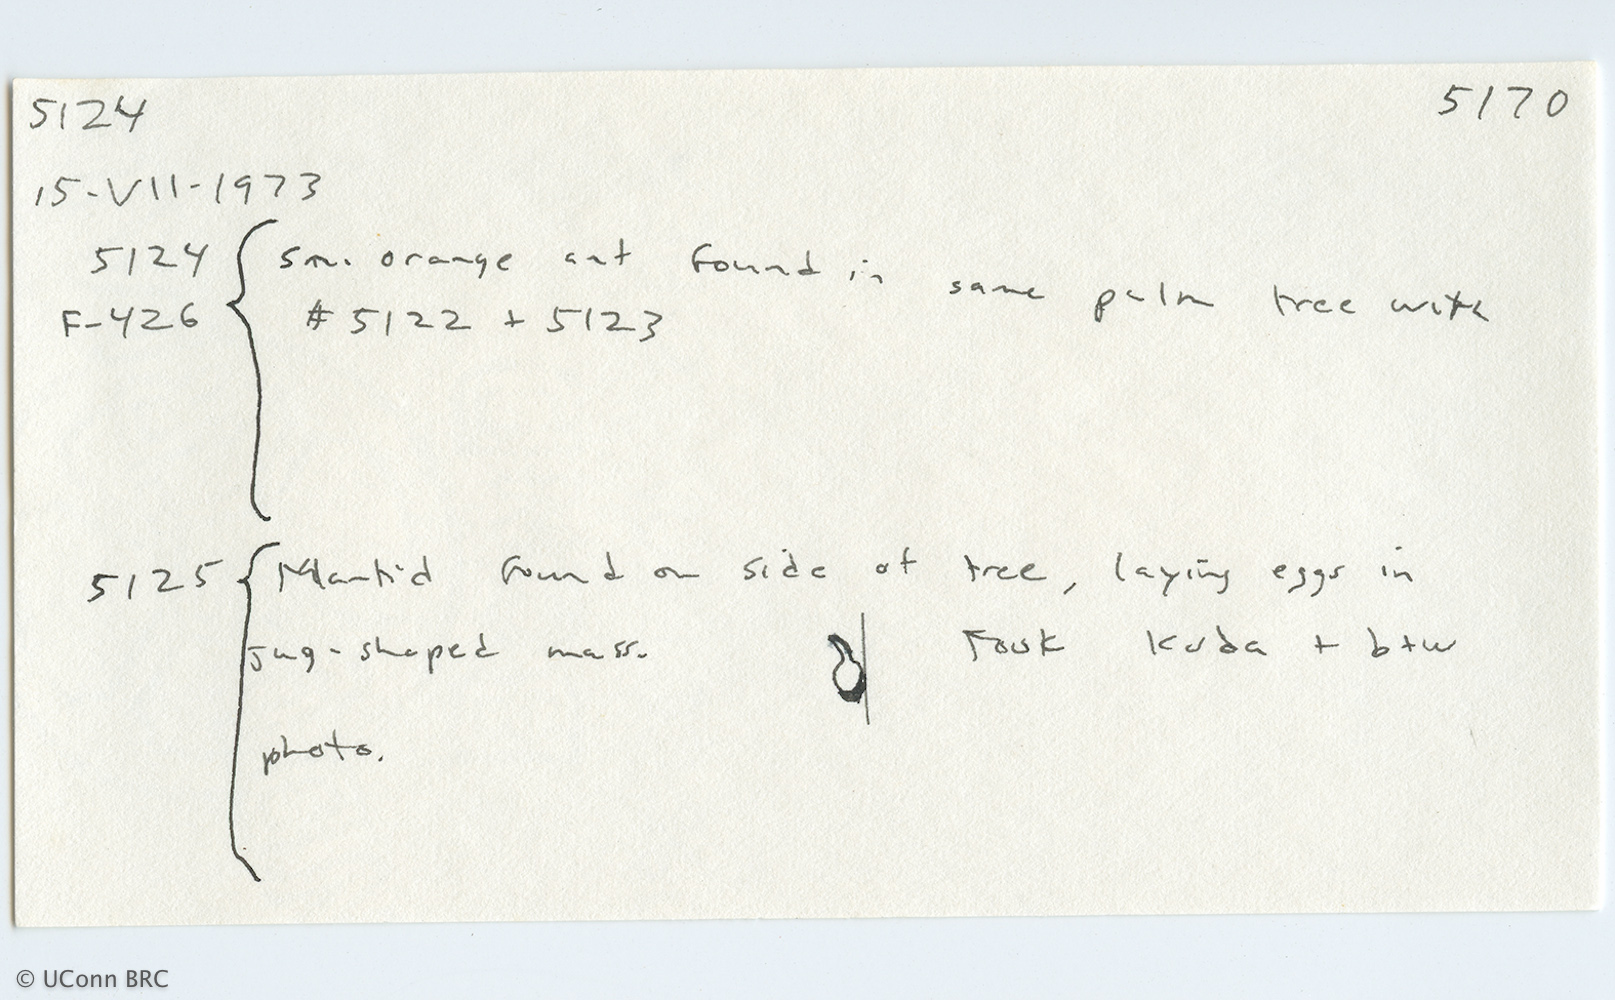 5124 5170
15-VII-1973
5124 sm. orange ant found in same palm tree with
F-426 # 5122 + 5123
5125 Mantid found on side of tree, laying eggs in
jug-shaped mass. Took koda + b+w
photo.
© UConn BRC